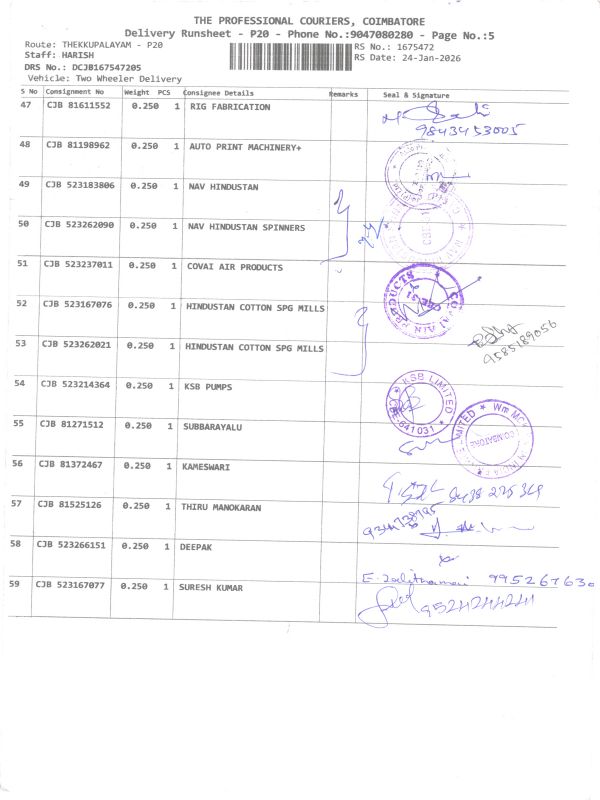 THE PROFESSIONAL COURIERS, COIMBATORE
Delivery Runsheet - P20 - Phone No.:9047080280 - Page No.:5
Route: THEKKUPALAYAM - P20 RS No.: 1675472
Staff: HARISH RS Date: 24-Jan-2026
DRS No.: DCJB167547205
Vehicle: Two Wheeler Delivery
S No Consignment No Weight PCS Consignee Details Remarks Seal & Signature
47 CJB 81611552 0.250 1 RIG FABRICATION
9843453005
48 CJB 81198962 0.250 1 AUTO PRINT MACHINERY+
49 CJB 523183806 0.250 1 NAV HINDUSTAN
50 CJB 523262090 0.250 1 NAV HINDUSTAN SPINNERS
51 CJB 523237011 0.250 1 COVAI AIR PRODUCTS
COVAI AIR PRODUCTS
52 CJB 523167076 0.250 1 HINDUSTAN COTTON SPG MILLS
9585189056
53 CJB 523262021 0.250 1 HINDUSTAN COTTON SPG MILLS
54 CJB 523214364 0.250 1 KSB PUMPS
KSB LIMITED
641031
55 CJB 81271512 0.250 1 SUBBARAYALU
56 CJB 81372467 0.250 1 KAMESWARI
57 CJB 81525126 0.250 1 THIRU MANOKARAN
58 CJB 523266151 0.250 1 DEEPAK
995267630
59 CJB 523167077 0.250 1 SURESH KUMAR